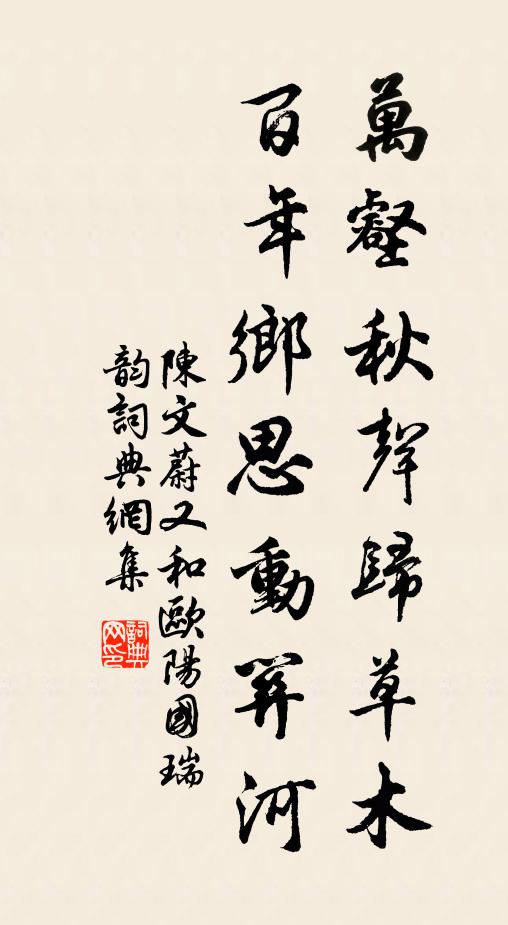 萬壑秋聲歸草木
百年鄉思動關河
陳文蔚又和歐陽國瑞
韵詞典網集
詞典网印